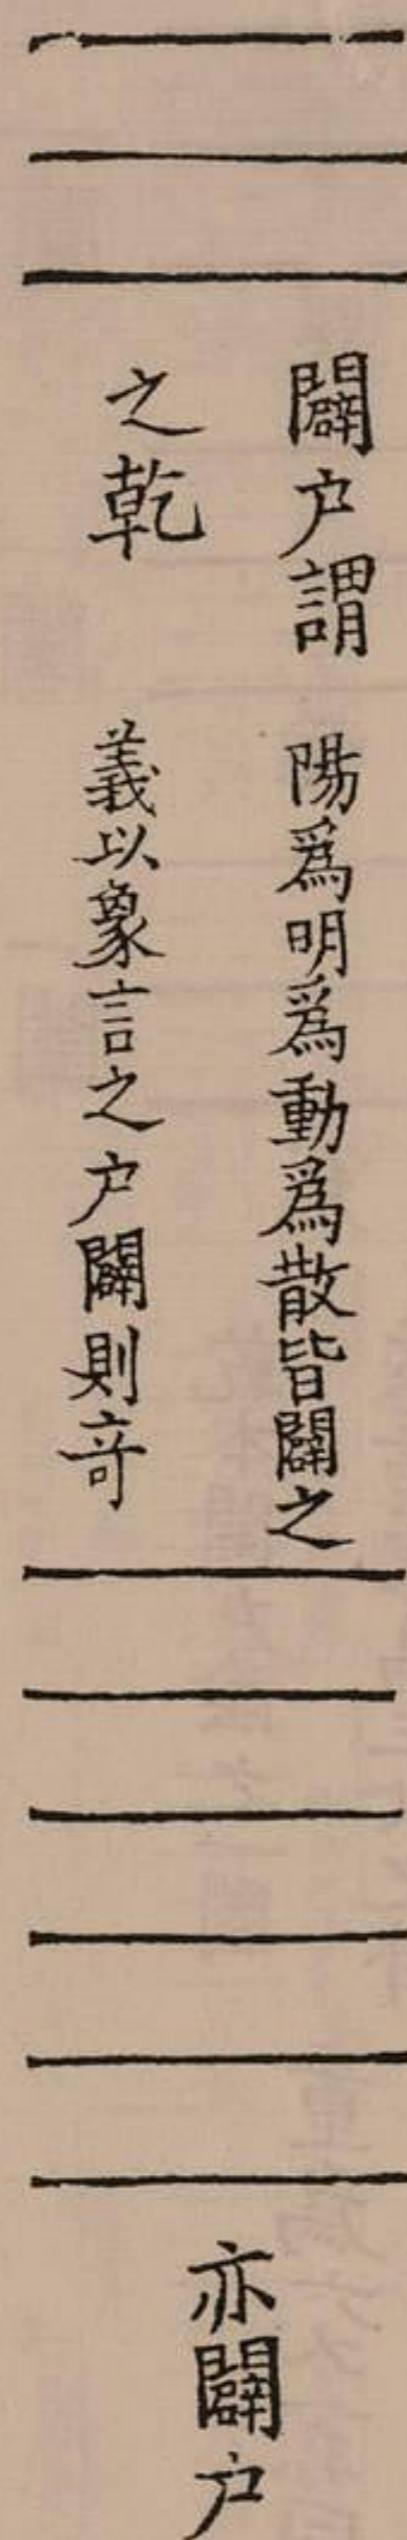 闢户謂
之乾
陽爲明爲動爲散皆闢之
義以象言之户闢則竒
亦闢户